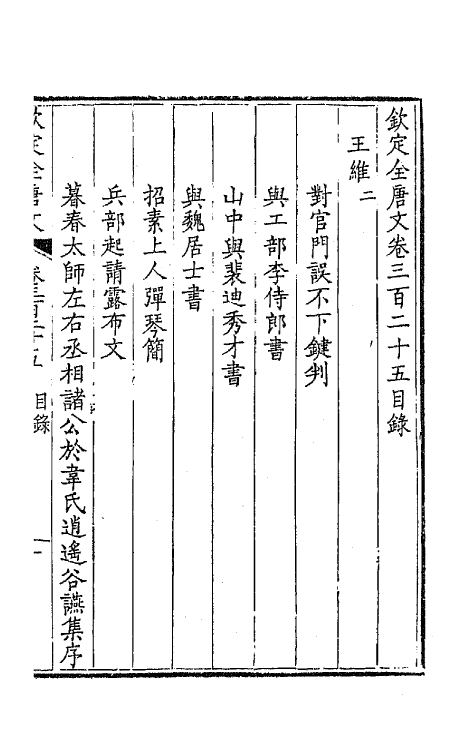 欽定全唐文卷三百二十五目錄
王維二
對官門誤不下鍵判
與工部李侍郎書
山中與裴迪秀才書
與魏居士書
招素上人彈琴簡
兵部起請露布文
暮春太師左右丞相諸公於韋氏逍遙谷讌集序
欽定全唐文 卷三百二十五 目錄 一